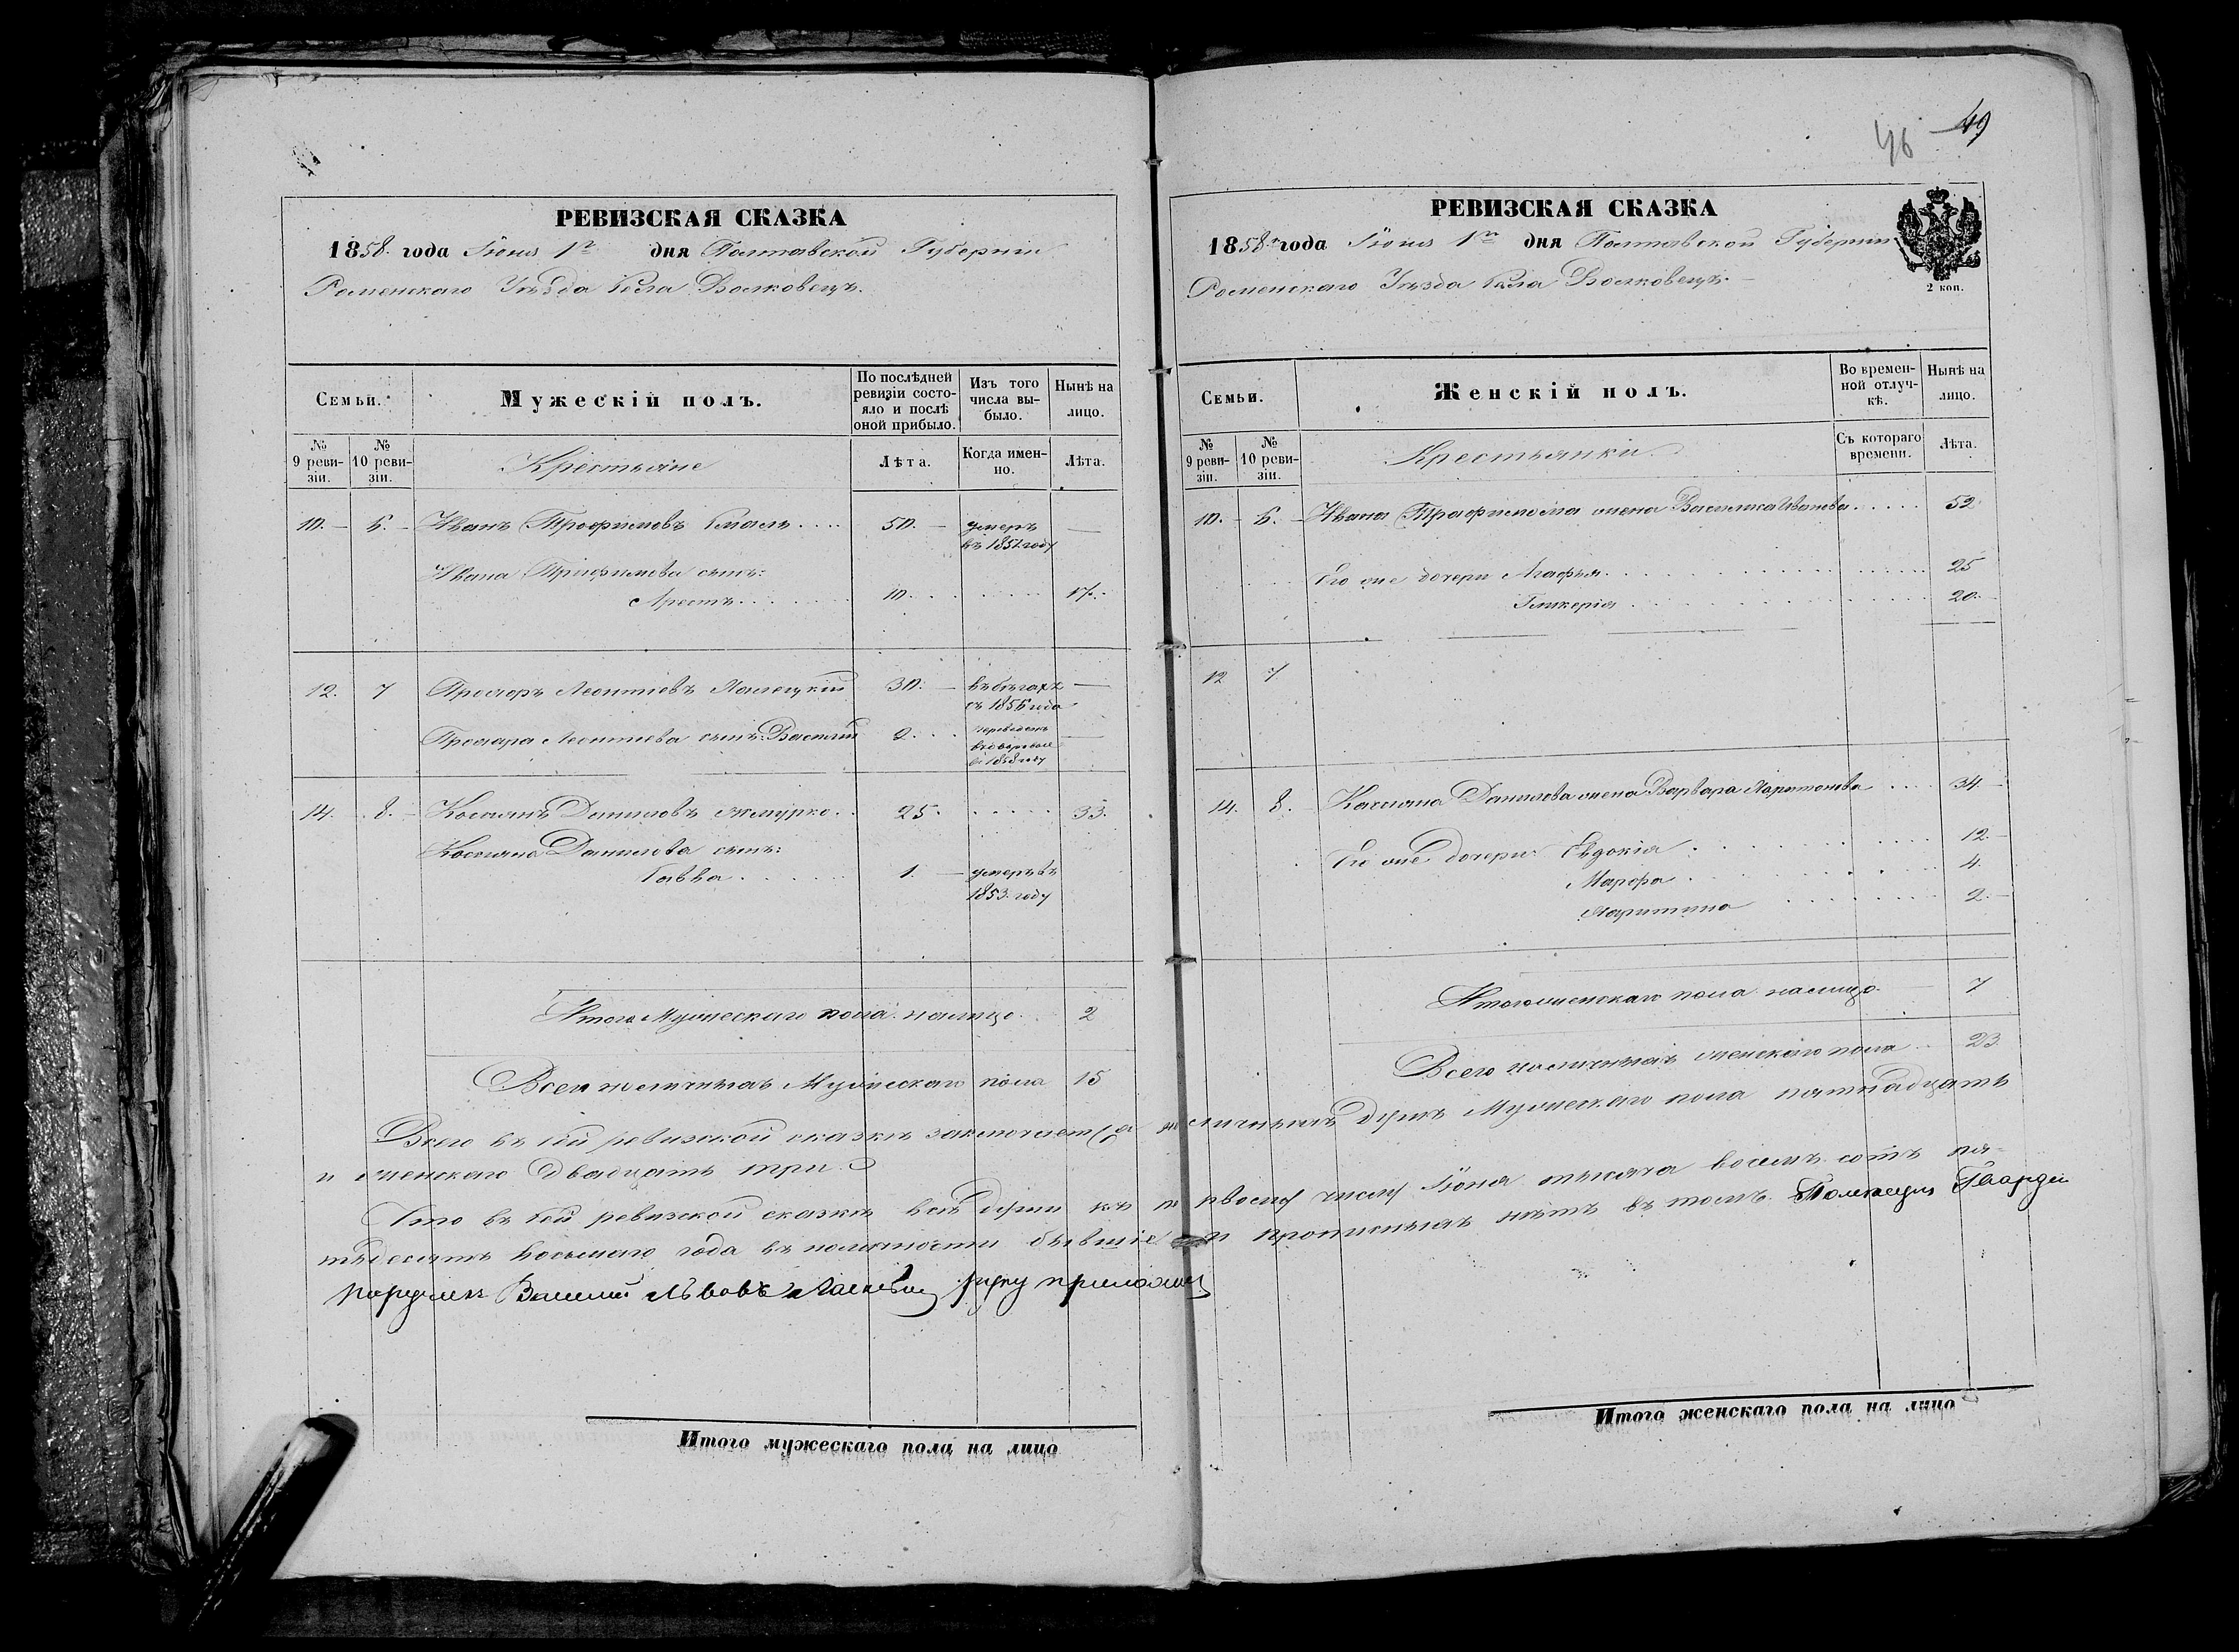 46 49
РЕВИЗСКАЯ СКАЗКА
1858. года Іюня 1го дня Полтавской Губерніи
Роменскаго Уѣзда Села Волковецъ.
Семьи.
Мужескій полъ.
По послѣдней ревизіи состояло и послѣ оной прибыло.
Изъ того числа выбыло.
Нынѣ на лицо.
№ 9 ревизіи.
№ 10 ревизіи.
Крестьяне
Лѣта.
Когда именно.
Лѣта.
10. 6. Иванъ Трофимовъ 50. умеръ
въ 1851 году
Ивана Трофимова сынъ:
10. 17.
12. 7 Прохоръ Леонтіевъ 30. въ бѣгахъ
съ 1856 года
Прохора Леонтіева сынъ: Василій 2
14. 8. Касьянъ Даниловъ Жмурко 25. 33.
Касьяна Данилова сынъ:
Савва 1. умеръ въ
1853. году
Итого Мужескаго пола налицо 2
Всего наличныхъ Мужескаго пола 15
РЕВИЗСКАЯ СКАЗКА
1858. года Іюня 1го дня Полтавской Губерніи
Роменскаго Уѣзда Села Волковецъ.
2 коп.
Семьи.
Женскій полъ.
Во временной отлучкѣ.
Нынѣ на лицо.
№ 9 ревизіи.
№ 10 ревизіи.
Крестьянки.
Съ котораго времени.
Лѣта.
10. 6. Ивана Трофимова жена Василиса Иванова 52
Его же дочери Агафья 25
Гликерія 20.
12 7
14. 8. Касьяна Данилова жена Варвара Харитонова 34.
Его же дочери Евдокія 12.
Марфа 4.
2.
Итого женскаго пола налицо 7
Всего наличныхъ женскаго пола 23
Всего въ сей ревизской сказкѣ заключается наличныхъ душъ Мужескаго пола пятнадцать
и женскаго двадцать три.
Что въ сей ревизской сказкѣ всѣ души къ первому числу Іюня тысяча восемь сотъ пя-
тьдесятъ восьмаго года въ наличности бывшіе и прописныхъ нѣтъ въ томъ Помѣщикъ Гвардіи
Поручикъ Василій Львовъ руку приложилъ
Итого мужескаго пола на лицо
Итого женскаго пола на лицо